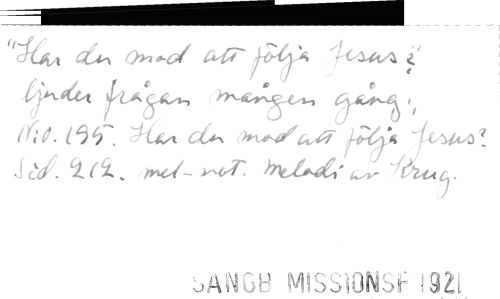 "Har du mod att följa Jesus?"
ljuder frågan mången gång;
N:o. 195. Har du mod att följa Jesus?
Sid. 212. met-not. Melodi av Krug.
SANGB MISSIONSF 1921